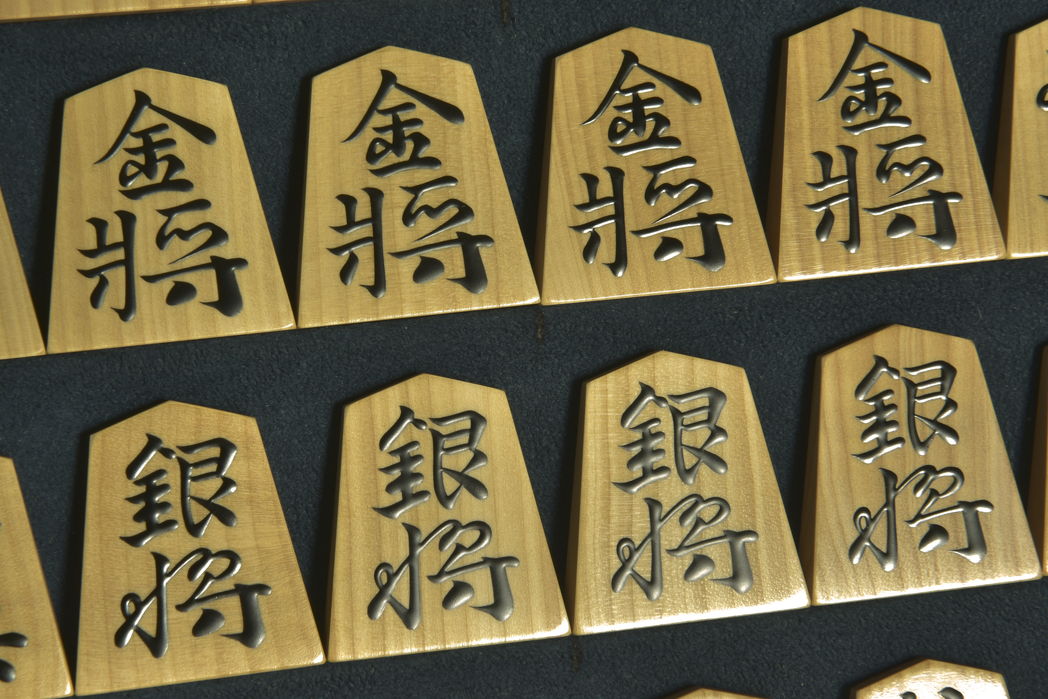 金將
金將
金將
金將
銀将
銀将
銀将
銀将